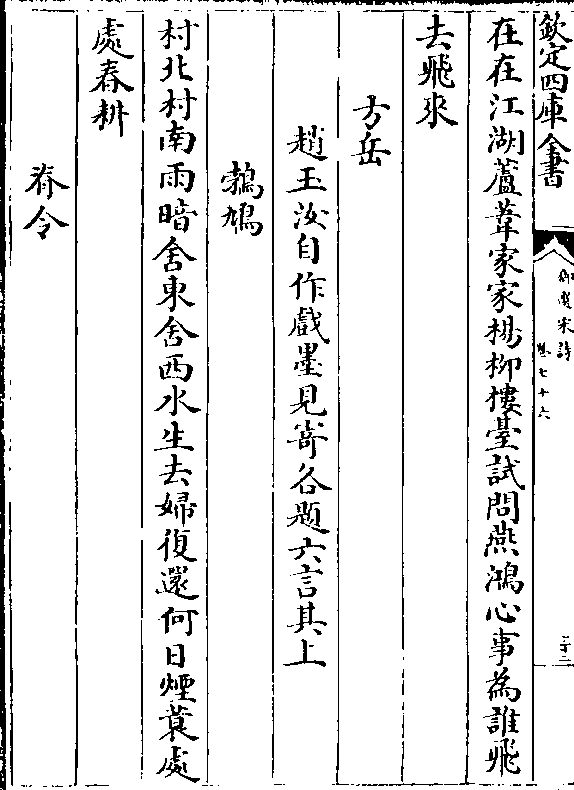 欽定四庫全書
御選宋詩
卷七十六
三十二
在在江湖蘆葦家家楊柳樓臺試問燕鴻心事為誰飛
去飛來
方岳
趙王汝自作戲墨見寄各題六言其上
鵓鳩
村北村南雨暗舍東舍西水生去婦復還何日煙蓑處
處春耕
脊令